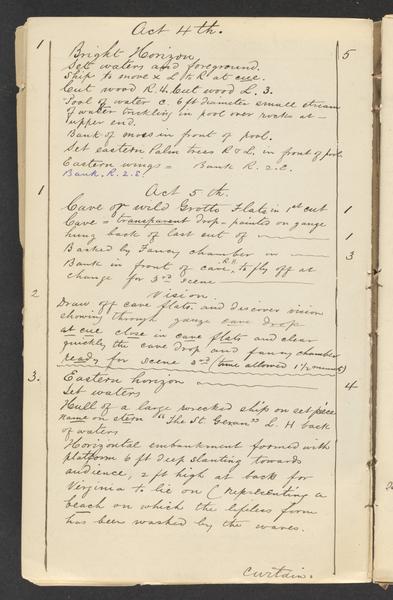 Act 4th.
1 Bright Horizon 5
Set waters and foreground.
Ship to move x L to R at cue.
Cut wood R. 4. Cut wood L. 3.
Pool of water c. 6 ft diameter small stream
of water trickling in pool over rocks at
upper end.
Bank of moss in front of pool.
Set eastern Palm trees R & L. in front of pool.
Eastern wings = Bank R. 2. E.
Bank. R. 2. E.
Act 5th.
1 Cave of wild Grotto Flats in 1st cut 1
Cave = transparent drop - painted on gauge
hung back of last cut of 1
Backed by Fancy chamber on 3
Bank in front of cave, R.H. to fly off at
change for 3rd scene
Vision.
2 Draw off cave flats. and discover vision
showing through gauge cave drop
at cue close in cave flats and clear
quickly the cave drop and fancy chamber
ready for scene 3rd (time allowed 1½ minutes)
3. Eastern horizon 4
Set waters
Hull of a large wrecked ship on set piece
name on stern "The St. Geran" L. H back
of waters
Horizontal embankment formed with
platform 6 ft deep slanting towards
audience, 2 ft high at back for
Virginia to lie on (representing a
beach on which the lifeless form
has been washed by the waves.
Curtain.